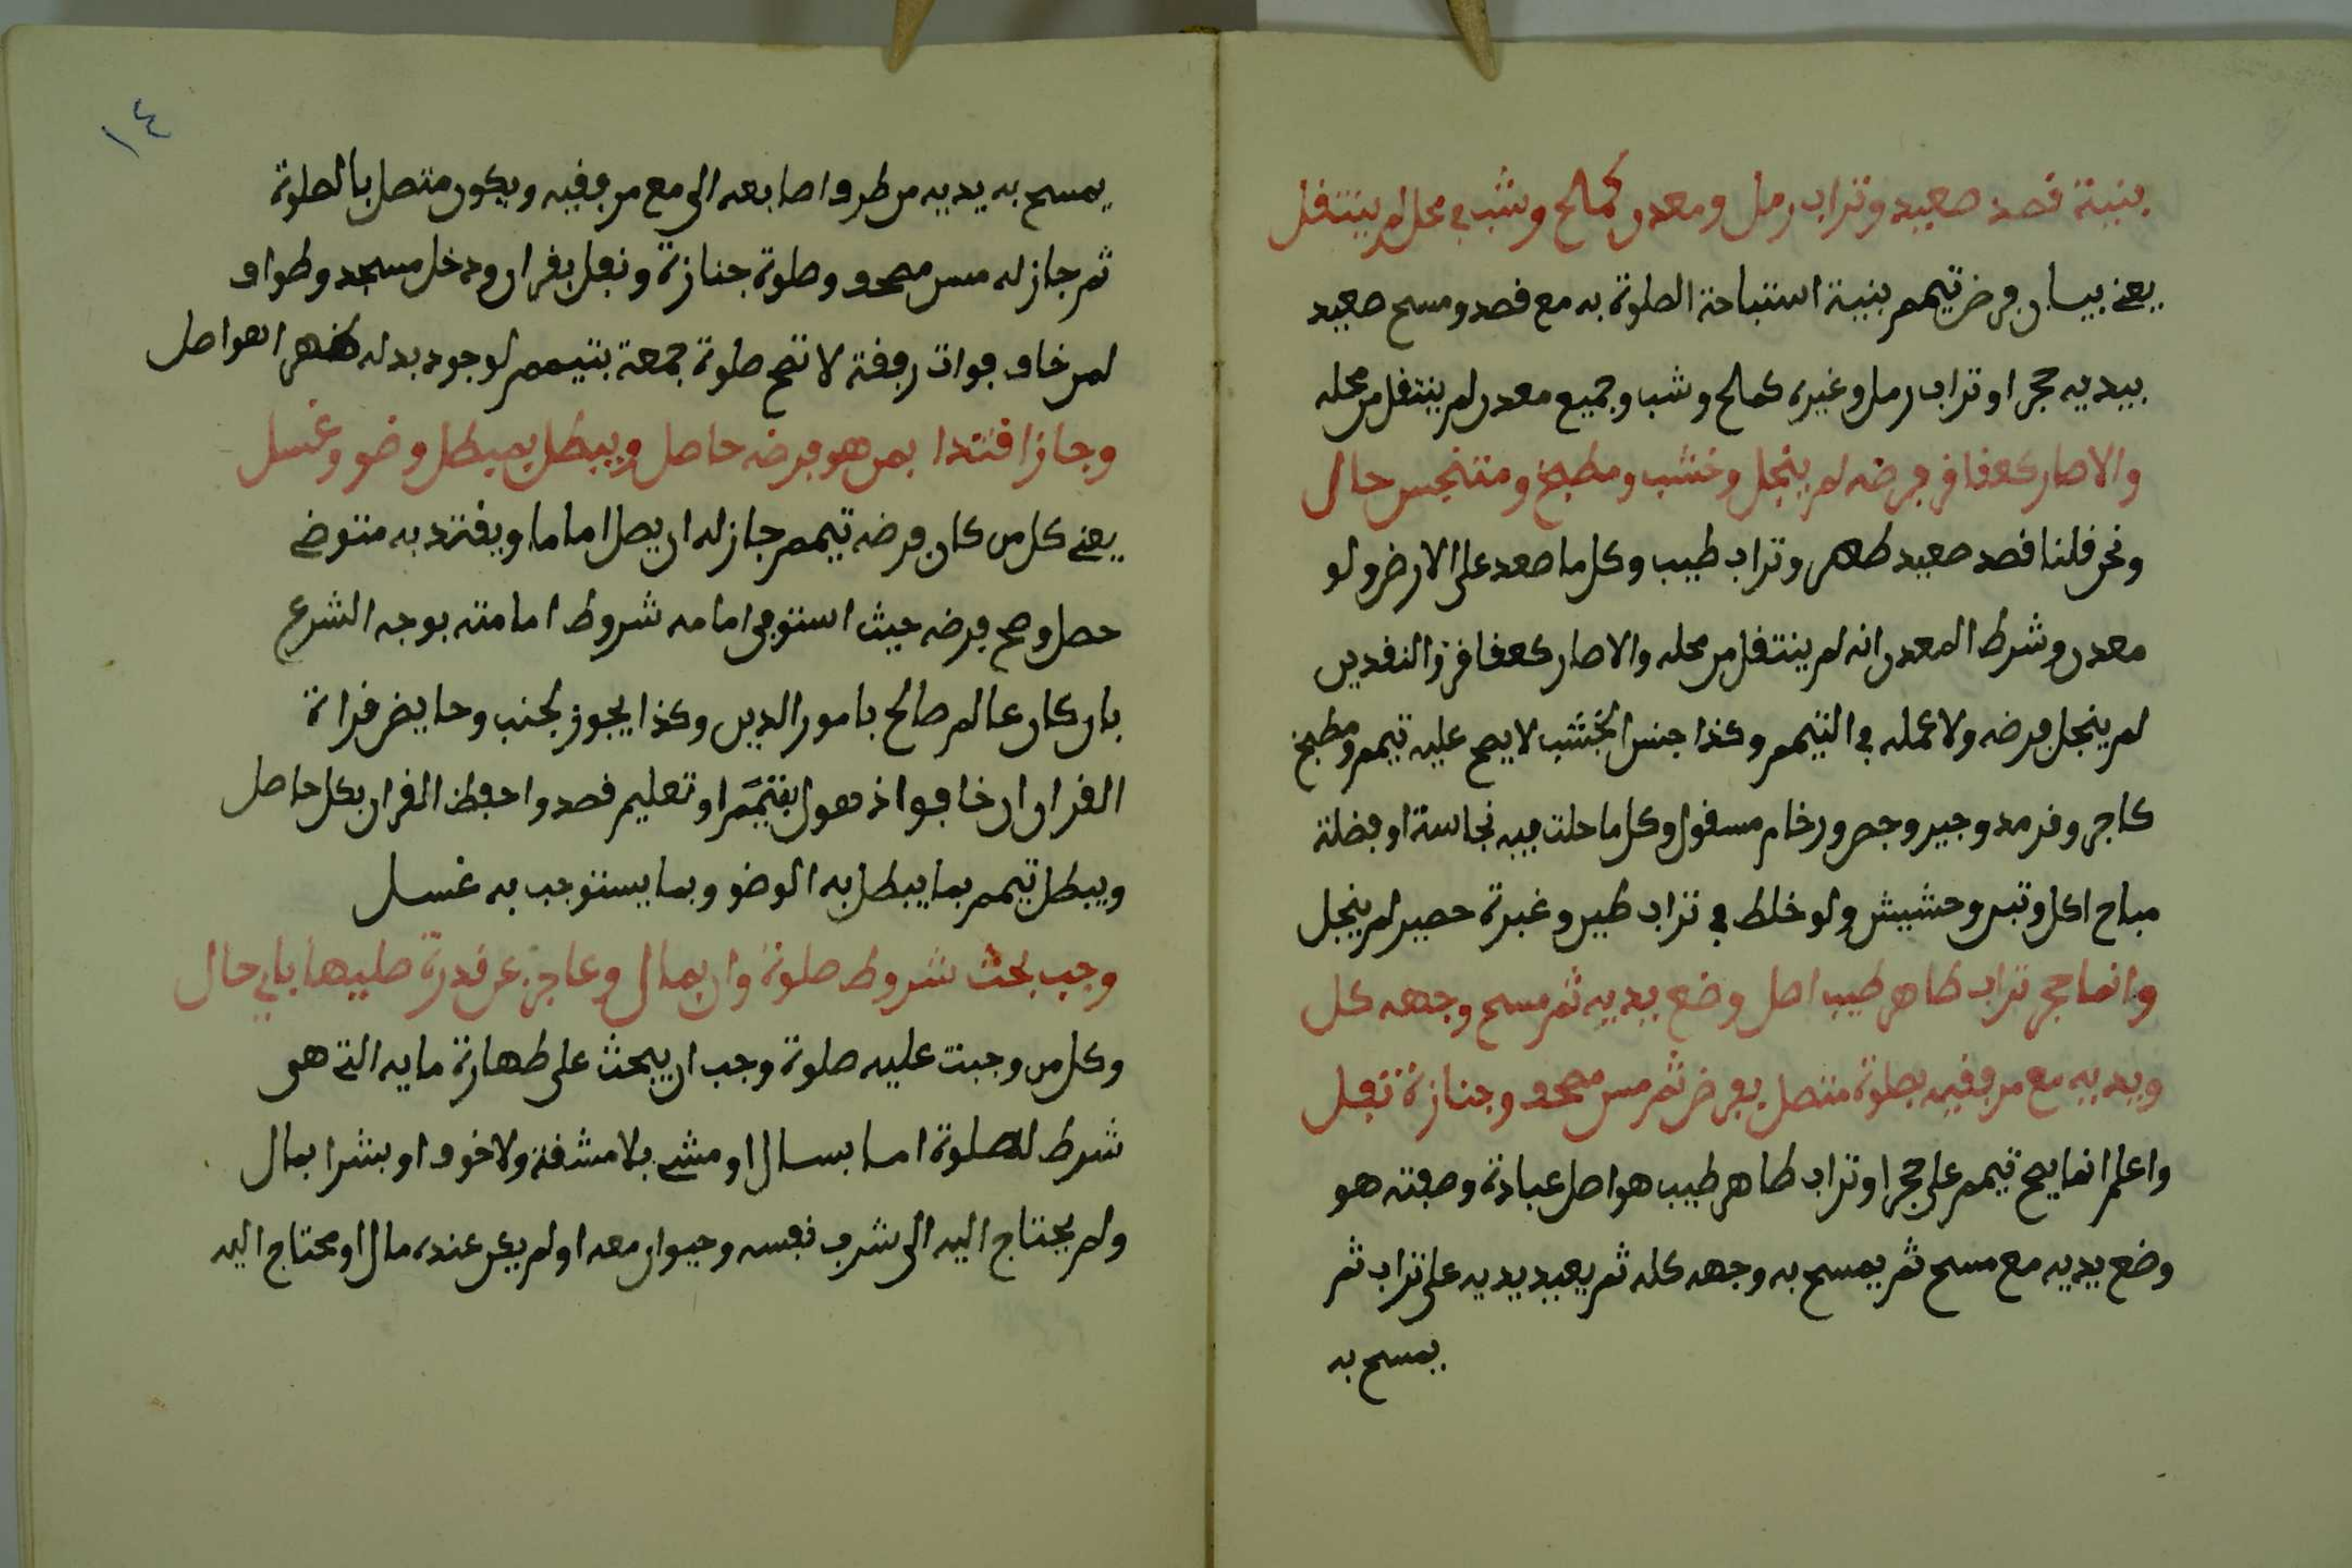 بنية قصد صعيد وتراب رمل ومعدن كملح وشب في محل لم ينتقل
يعني بيان فرض تيمم بنية استباحة الصلوة به مع قصد ومسح صعيد
بيديه حجر او تراب رمل وغيره كملح وشب وجميع معدن لم ينتقل من محله
والاصار كعفاقر فرضه لم ينجل وخشب ومطبخ ومتنجس حال
ونحن قلنا قصد صعيد طهر وتراب طيب وكل ما صعد على الارض ولو
معدن وشرط المعدن انه لم ينتقل من محله والاصار كعفاقر والنقدين
لم ينجل فرضه ولا عمله في التيمم وكذا جنس الخشب لا يصح عليه تيمم ومطبخ
كاجر وقرمد وجير وجص ورخام مسقول وكل ما حلت فيه نجاسة او فضلة
مباح اكل وتبن وحشيش ولو خلط في تراب طير وغبرة حصير لم ينجل
وانما حجر تراب طاهر طيب اصل وضع بيديه ثم مسح وجهه كل
ويديه مع مرفقيه بصلوة متصل بفرض ثم مس مصحف وجنازة تفل
واعلم انما يصح تيمم على حجر او تراب طاهر طيب هو اصل عبادة وصفته هو
وضع يديه مع مسح ثم يمسح به وجهه كله ثم يعيد يديه على تراب ثم
يمسح به
١٤
يمسح به يديه من طرف اصابعه الى مع مرفقيه ويكون متصل بالصلوة
ثم جاز له مس مصحف وصلوة جنازة ونفل بقران ودخل مسجد وطواف
لمن خاف فوات رفقة لا تصح صلوة جمعة بتيمم لوجود بدله ظهر اهو اصل
وجاز اقتدا بمن هو فرضه حاصل ويبطل بمبطل وضو وغسل
يعني كل من كان فرضه تيمم جاز له ان يصل اماما ويقتد به متوضي
حصل وصح فرضه حيث استوفى امامه شروط امامته بوجه الشرع
بان كان عالم صالح بامور الدين وكذا يجوز لجنب وحايض قراة
القران ان خافوا ذهول بقتيمم او تعليم قصدوا حفظ القران بكل حاصل
ويبطل تيمم بما يبطل به الوضو وبما يستوجب به غسل
وجب بحث شروط صلوة وان بمال وعاجز عن قدرة صليها باي حال
وكل من وجبت عليه صلوة وجب ان يبحث على طهارة مايه التي هي
شرط للصلوة اما بسال او مشي بلا مشقة ولا خوف او بشرا بمال
ولم يحتاج اليه الى شرب نفسه وحيوان معه او لم يكن عنده مال او محتاج اليه